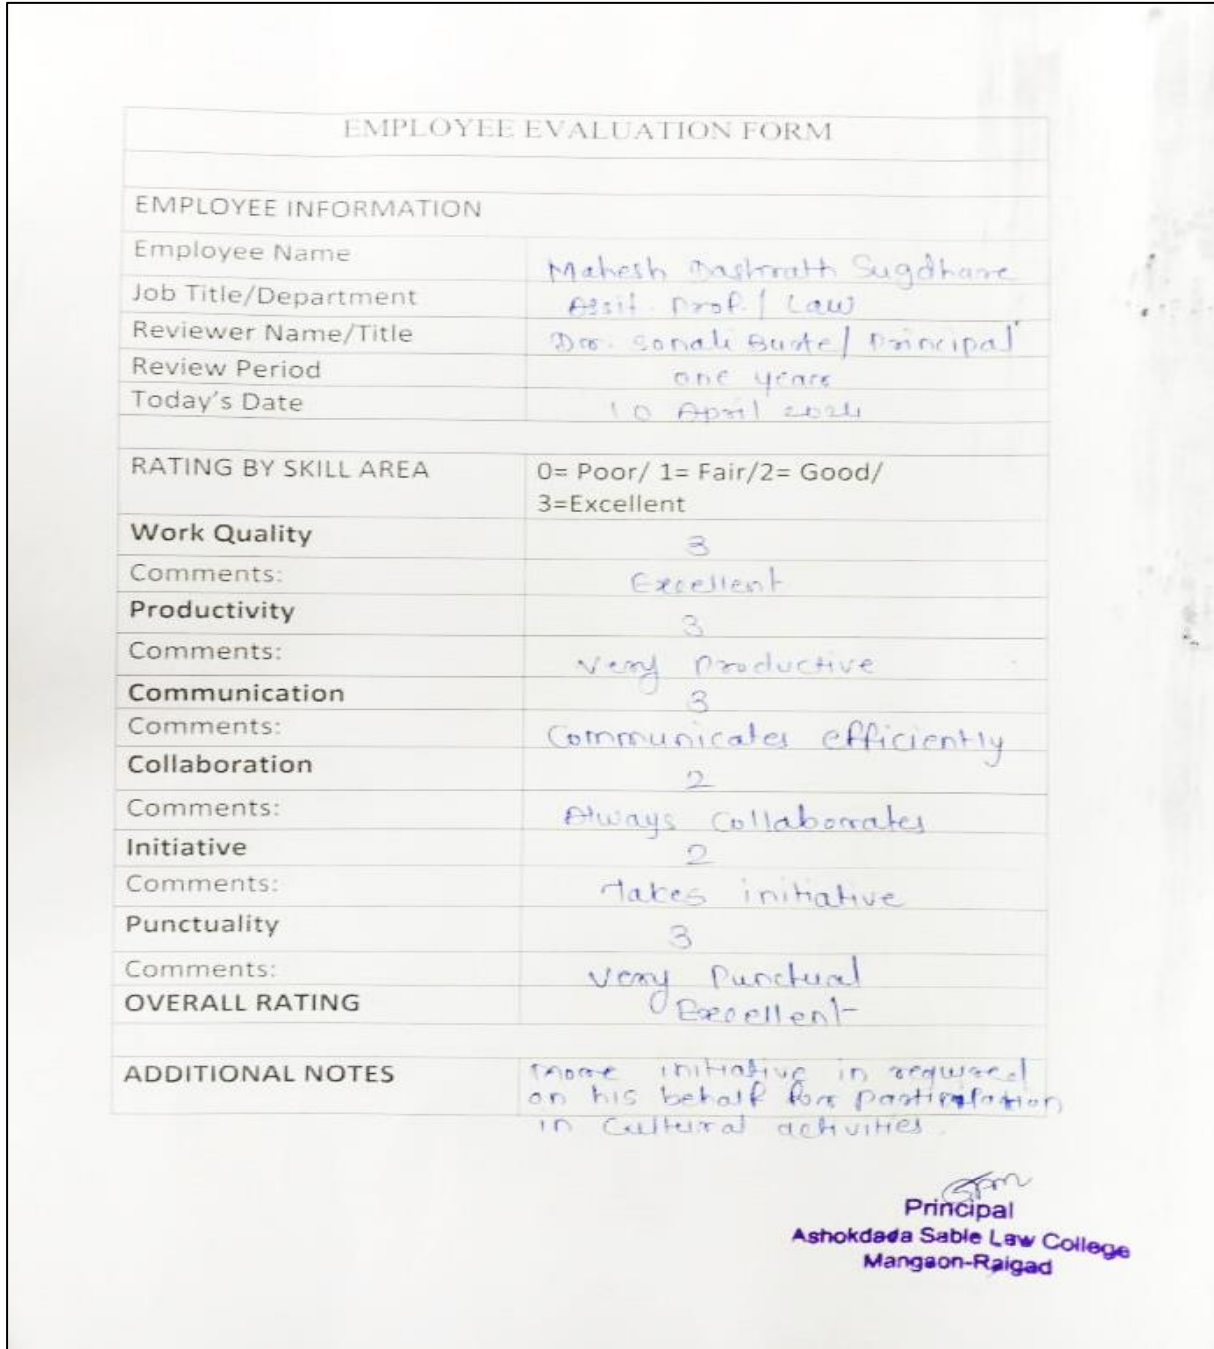 EMPLOYEE EVALUATION FORM
EMPLOYEE INFORMATION
Employee Name Mahesh Dashrath Sugdhare
Job Title/Department Assit. Prof. / Law
Reviewer Name/Title Dr. Sonali / Principal
Review Period one years
Today's Date 10 April 2024
RATING BY SKILL AREA 0= Poor/ 1= Fair/2= Good/
3=Excellent
Work Quality 3
Comments: Excellent
Productivity 3
Comments: Very Productive
Communication 3
Comments: Communicates efficiently
Collaboration 2
Comments: Always Collaborates
Initiative 2
Comments: Takes initiative
Punctuality 3
Comments: Very Punctual
OVERALL RATING Excellent
ADDITIONAL NOTES more initiative in required
on his behalf for participation
in Cultural activities.
Principal
Ashokdada Sable Law College
Mangaon-Raigad